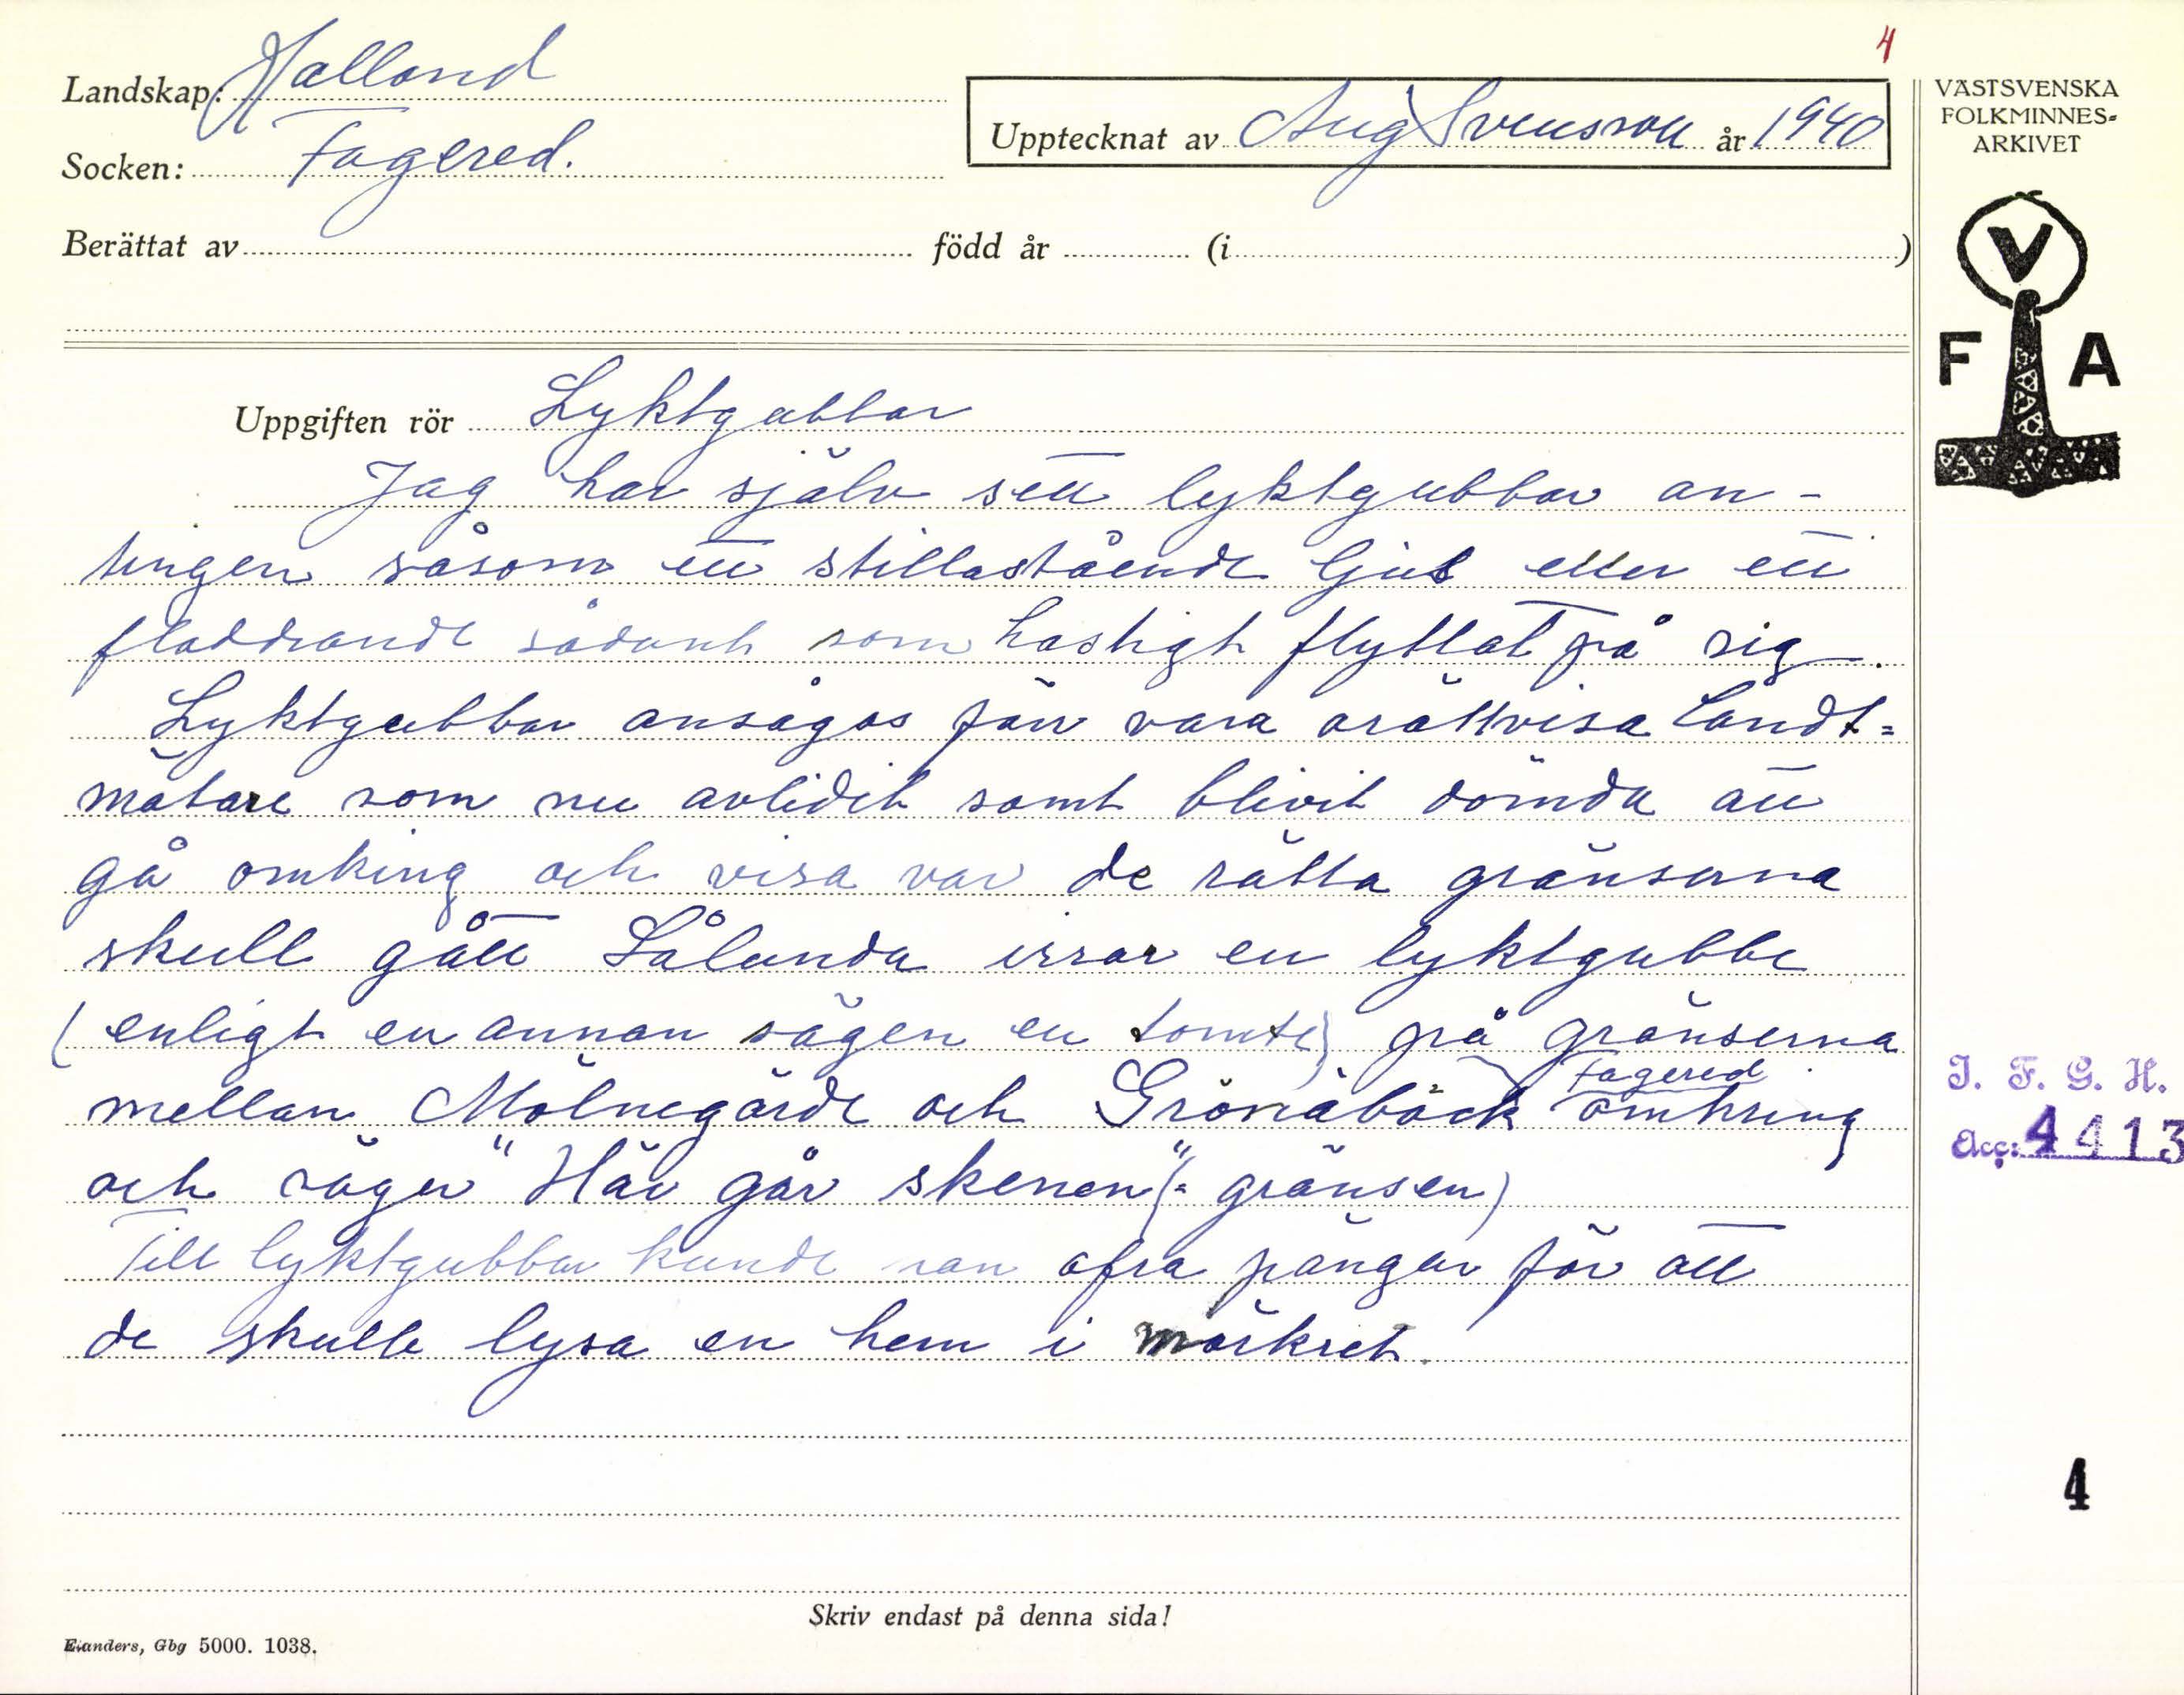 4
Landskap: Halland
Socken: Fagered.
Upptecknat av Aug Svensson år 1940
Berättat av född år (i )
VÄSTSVENSKA
FOLKMINNES-
ARKIVET
V
F A
Uppgiften rör Lyktgubbar
Jag har själv sett lyktgubbar an-
tingen såsom ett stillastående ljus eller ett
fladdrande sådant som hastigt flyttat på sig.
Lyktgubbar ansågos förr vara orättvisa landt=
mätare som nu avlidit samt blivit dömda att
gå omking och visa var de rätta gränserna
skull gått Sålunda irrar en lyktgubbe
(enligt en annan sägen en tomte) på gränserna
mellan Mölnegärde och Grönabäck Fagered omkring
och säger "Här går skenen" (= gränsen)
Till lyktgubbar kunde man ofra pängar för att
de skulle lysa en hem i mörkret.
I. F. G. H.
Acc: 4413
4
Skriv endast på denna sida!
Elanders, Gbg 5000. 1038.